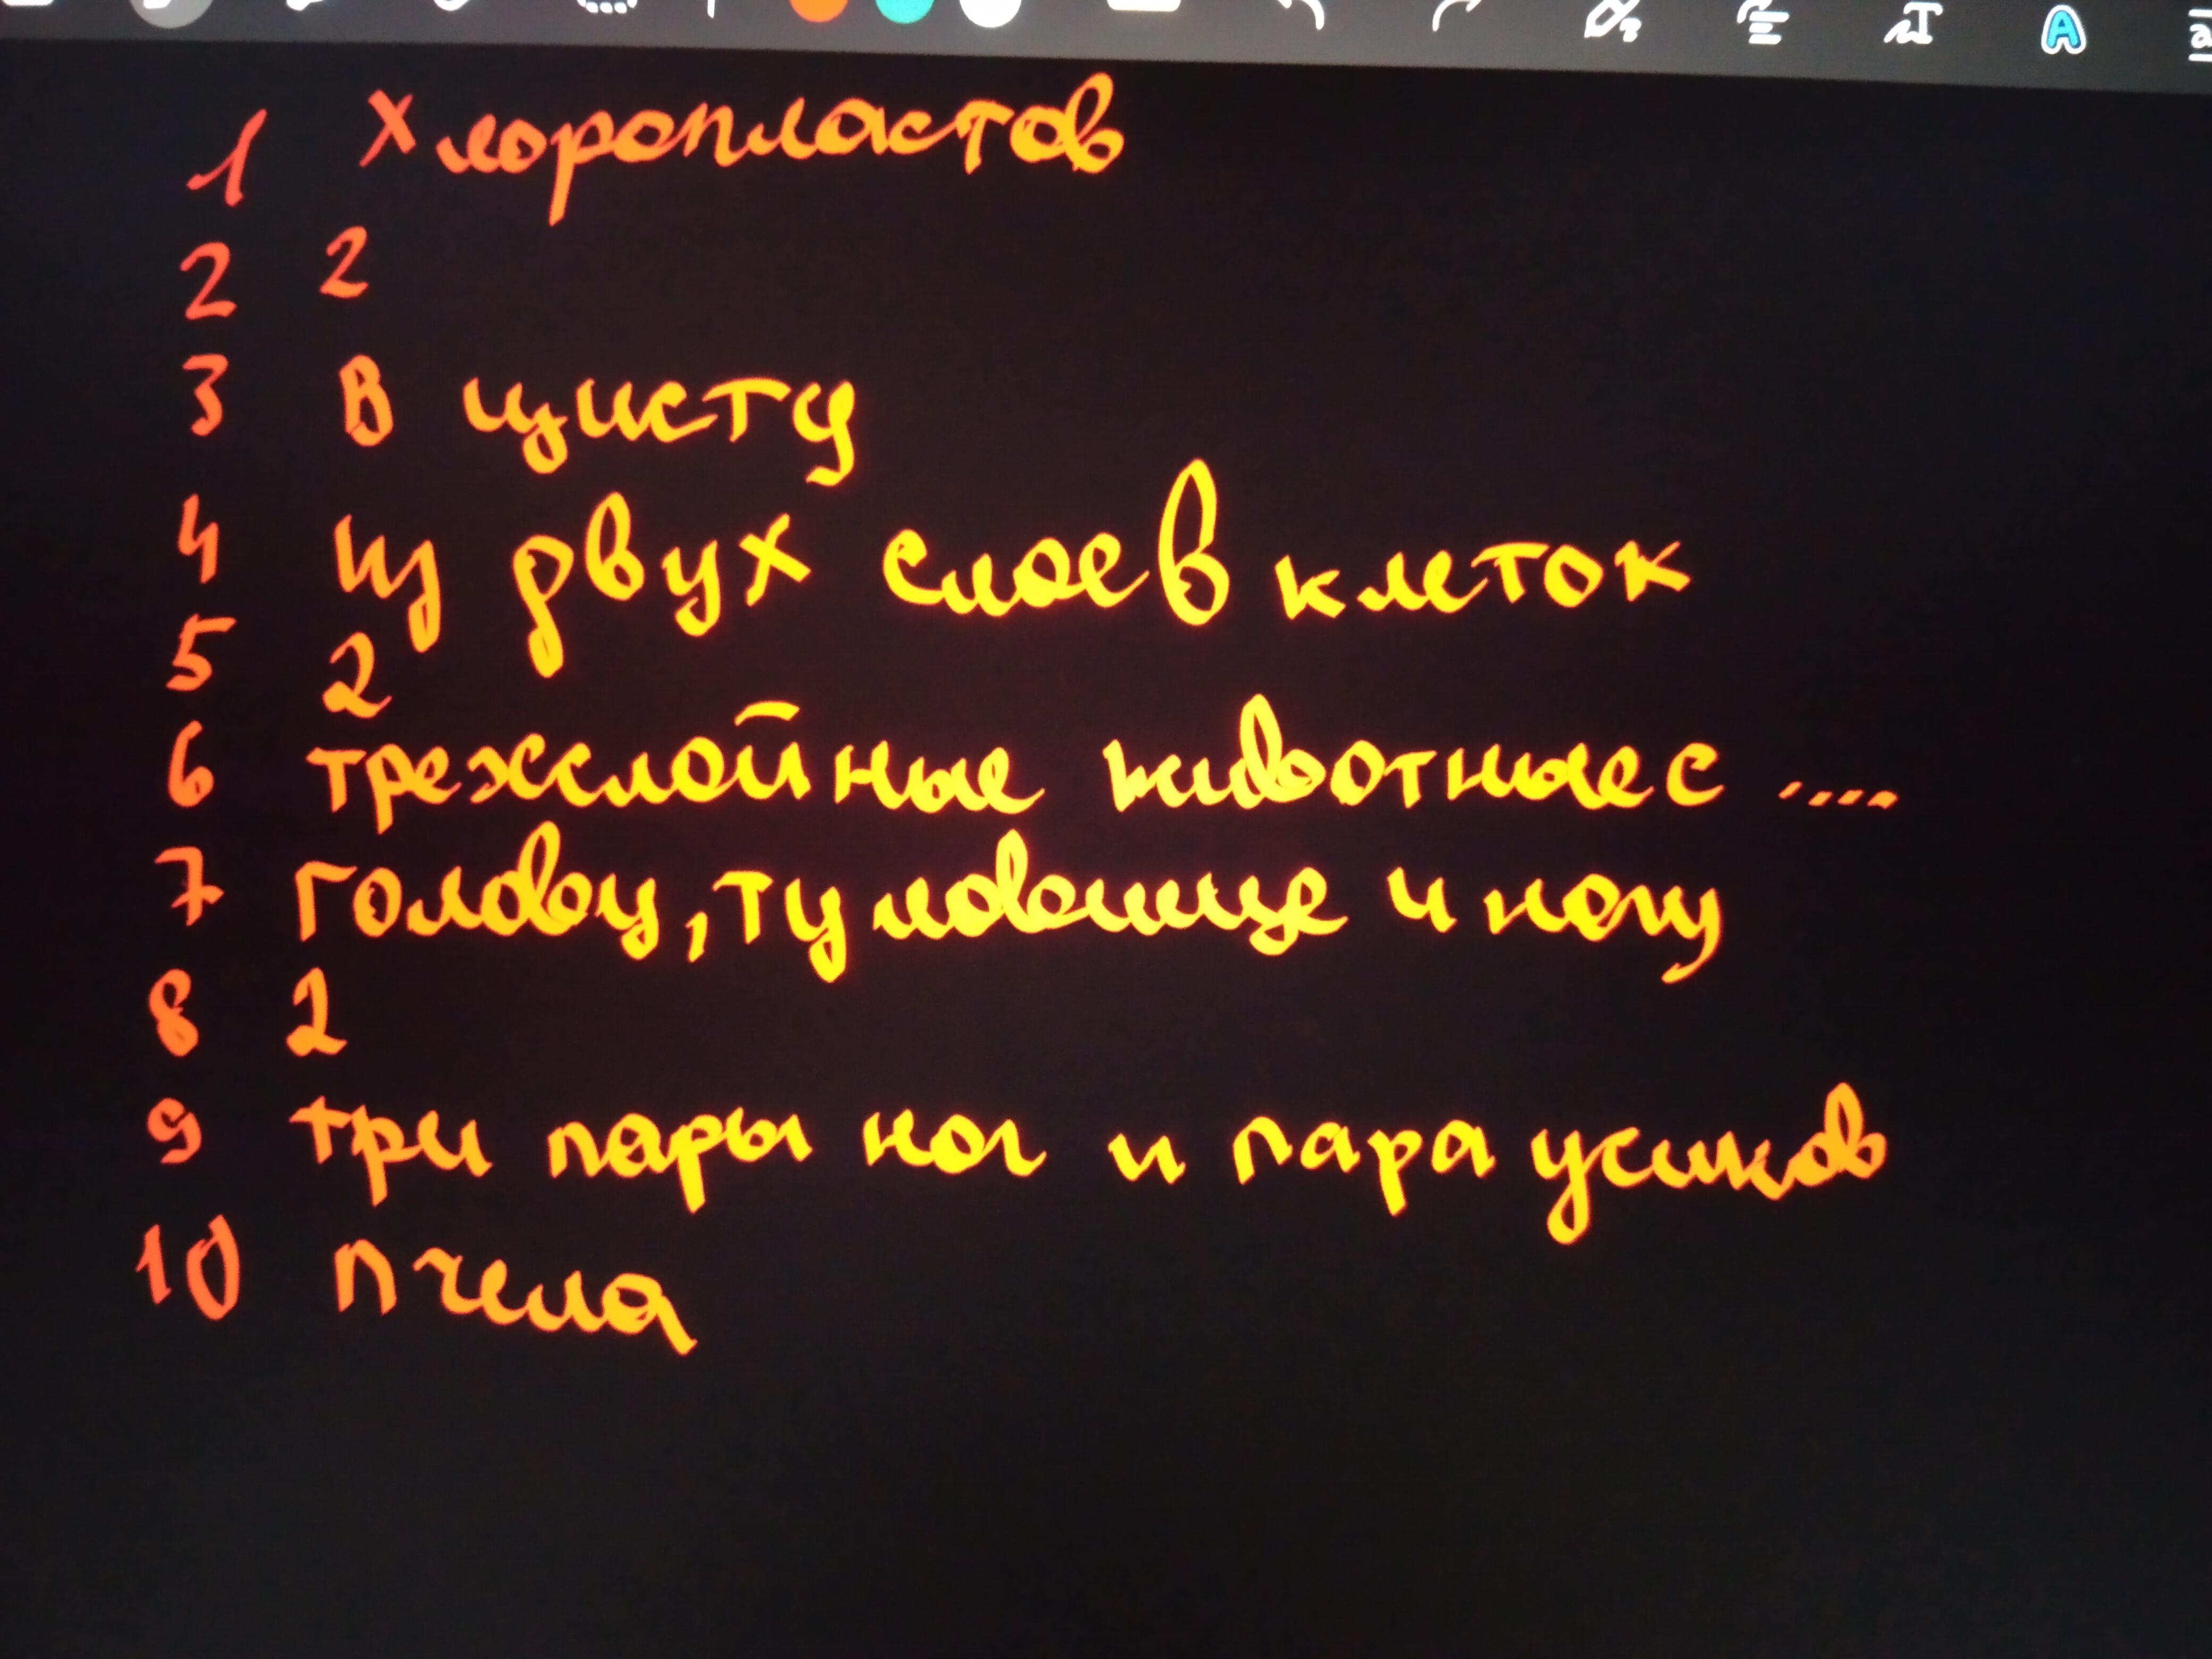 1 Хлоропластов
2 2
3 В цисту
4 Из двух слоев клеток
5 2
6 трехслойные животные с ....
7 Голову, туловище и ногу
8 2
9 три пары ног и пара усиков
10 пчела